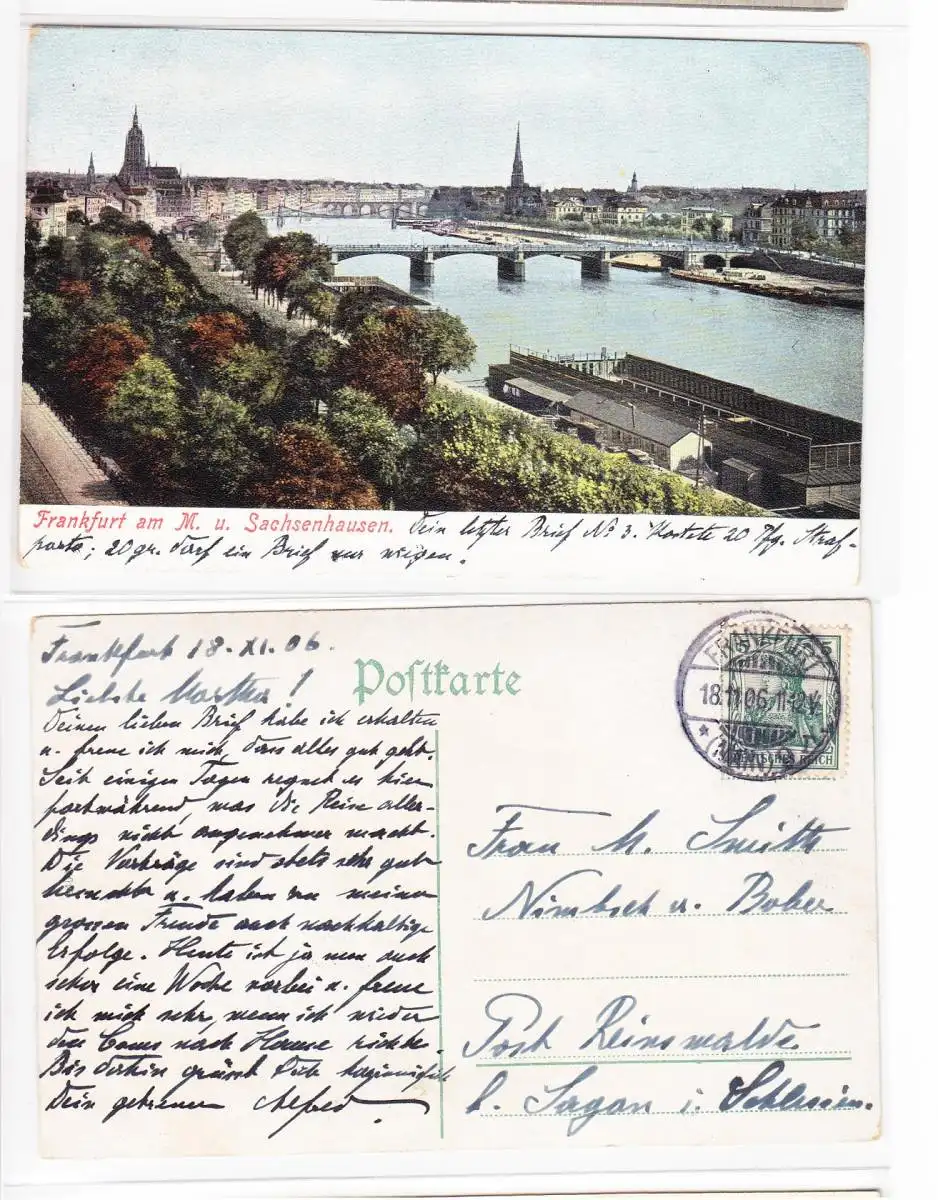 Frankfurt am M. u. Sachsenhausen. Dein letzter Brief No 3. kostete 20 Pfg. Straf-
porto; 20 gr. darf ein Brief nur wiegen.
Frankfurt 18. XI. 06.
Postkarte
Liebste Martha!
Deinen lieben Brief habe ich erhalten
u. freue ich mich, dass alles gut geht.
Seit einigen Tagen regnet es hier
fortwährend, was die Reise aller-
dings nicht angenehmer macht.
Die Vorträge sind stets sehr gut
besucht u. haben zu meiner
grossen Freude auch nachhaltige
Erfolge. Heute ist ja nun auch
schon eine Woche vorbei u. freue
ich mich sehr, wenn ich wieder
den Cours nach Hause richte.
Bis dahin grüsst Dich
Dein getreuer Alfred
FRANKFURT
18.11.06.11-12V.
(MAIN)
DEUTSCHES REICH
5
Frau M. Smith
Nimbsch a. Bober
Post Reinswalde
b. Sagan i. Schlesien.